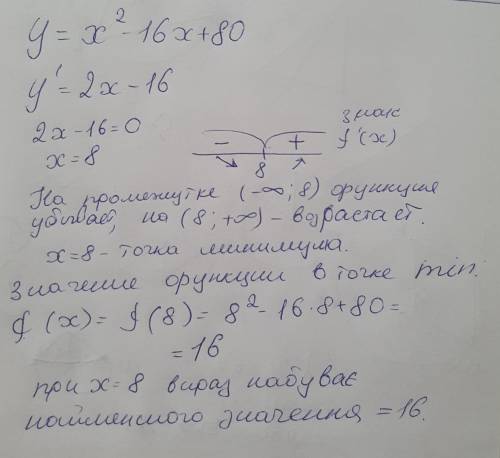 y = x² - 16x + 80
y' = 2x - 16
2x - 16 = 0
x = 8
- + знак f'(x)
8
На промежутке (-∞; 8) функция
убывает, на (8; +∞) - возрастает.
x = 8 - точка минимума.
Значение функции в точке min.
f(x) = f(8) = 8² - 16·8 + 80 =
= 16
при x = 8 вираз набуває
найменшого значення = 16.